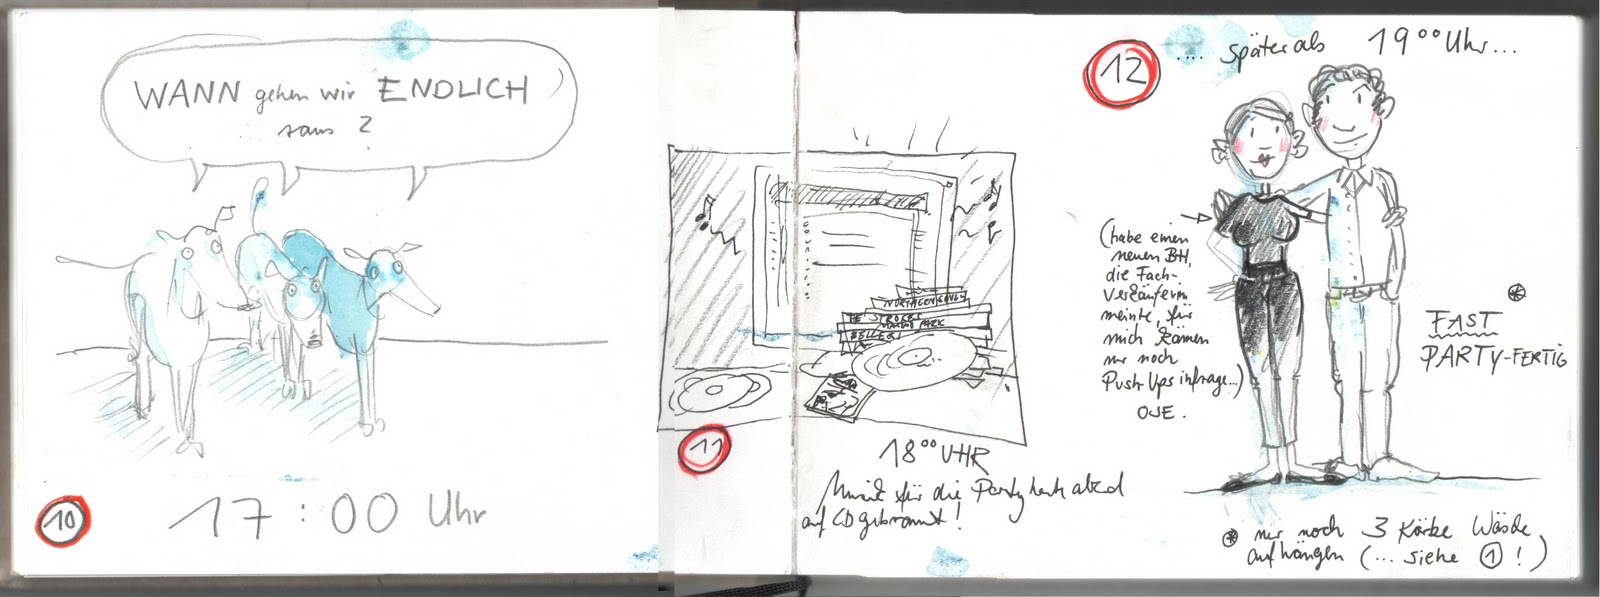 WANN gehen wir ENDLICH
raus ?
10
17:00 Uhr
11
18⁰⁰ UHR
Musik für die Party heut abend
auf CD gebrannt!
12
.... später als 19⁰⁰ Uhr...
(habe einen
neuen BH,
die Fach-
verkäuferin
meinte, für
mich kämen
nur noch
Push Ups infrage...)
OJE.
FAST
PARTY-FERTIG
nur noch 3 Körbe Wäsche
aufhängen (... siehe 1!)